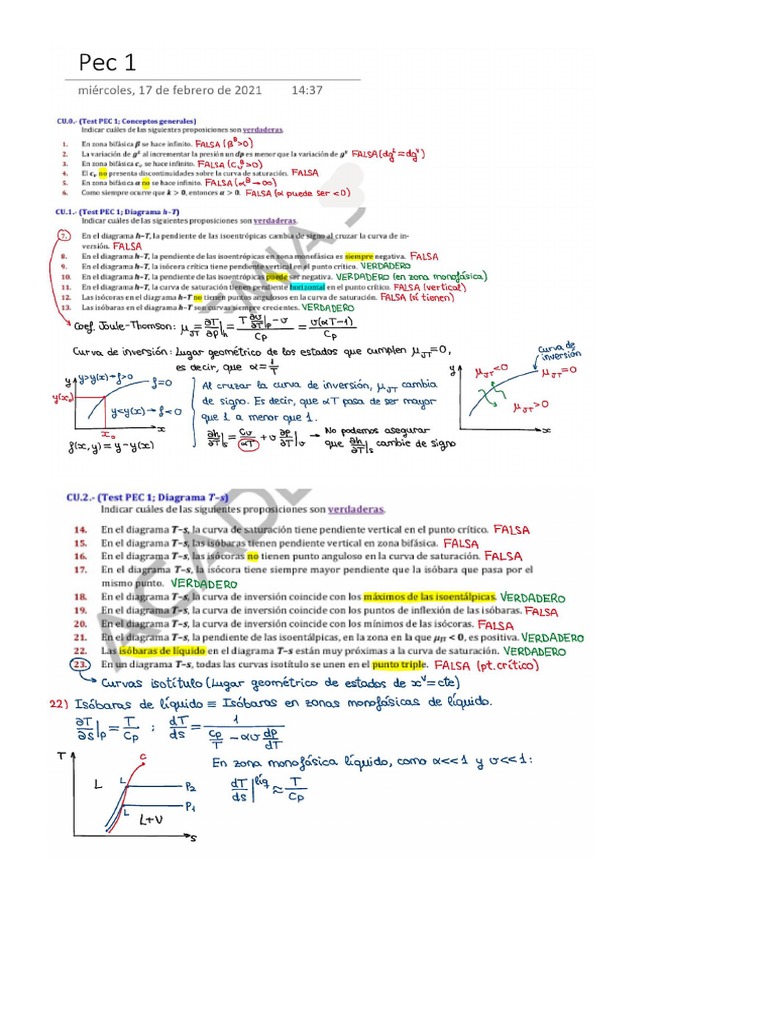 Pec 1
miércoles, 17 de febrero de 2021 14:37
CU.0.- (Test PEC 1; Conceptos generales)
Indicar cuáles de las siguientes proposiciones son verdaderas.
1. En zona bifásica β se hace infinito. FALSA (βᴮ>0)
2. La variación de gᴸ al incrementar la presión un dp es menor que la variación de gⱽ FALSA (dgᴸ=dgⱽ)
3. En zona bifásica cᵥ se hace infinito. FALSA (cᵥᴮ>0)
4. El cₚ no presenta discontinuidades sobre la curva de saturación. FALSA
5. En zona bifásica α no se hace infinito. FALSA (αᴮ→∞)
6. Como siempre ocurre que k > 0, entonces α > 0. FALSA (α puede ser <0)
CU.1.- (Test PEC 1; Diagrama h–T)
Indicar cuáles de las siguientes proposiciones son verdaderas.
7. En el diagrama h–T, la pendiente de las isoentrópicas cambia de signo al cruzar la curva de in-
versión. FALSA
8. En el diagrama h–T, la pendiente de las isoentrópicas en zona monofásica es siempre negativa. FALSA
9. En el diagrama h–T, la isócora crítica tiene pendiente vertical en el punto crítico. VERDADERO
10. En el diagrama h–T, la pendiente de las isoentrópicas puede ser negativa. VERDADERO (en zona monofásica)
11. En el diagrama h–T, la curva de saturación tienen pendiente horizontal en el punto crítico. FALSA (vertical)
12. Las isócoras en el diagrama h–T no tienen puntos angulosos en la curva de saturación. FALSA (sí tienen)
13. Las isóbaras en el diagrama h–T son curvas siempre crecientes. VERDADERO
Coef. Joule-Thomson: μ_JT = ∂T/∂p|h = (T ∂v/∂T|p − v)/Cp = v(αT−1)/Cp
Curva de inversión: Lugar geométrico de los estados que cumplen μ_JT=0,
es decir, que α=1/T
y y>y(x)→f>0 f=0
y(x₀)
y<y(x)→f<0
x₀ x
f(x,y) = y−y(x)
Al cruzar la curva de inversión, μ_JT cambia
de signo. Es decir, que αT pasa de ser mayor
que 1 a menor que 1.
∂h/∂T|s = Cv/αT + v ∂p/∂T|v → No podemos asegurar
que ∂h/∂T|s cambie de signo
y μ_JT<0 curva de
inversión
μ_JT=0
μ_JT>0
x
CU.2.- (Test PEC 1; Diagrama T–s)
Indicar cuáles de las siguientes proposiciones son verdaderas.
14. En el diagrama T–s, la curva de saturación tiene pendiente vertical en el punto crítico. FALSA
15. En el diagrama T–s, las isóbaras tienen pendiente vertical en zona bifásica. FALSA
16. En el diagrama T–s, las isócoras no tienen punto anguloso en la curva de saturación. FALSA
17. En el diagrama T–s, la isócora tiene siempre mayor pendiente que la isóbara que pasa por el
mismo punto. VERDADERO
18. En el diagrama T–s, la curva de inversión coincide con los máximos de las isoentálpicas. VERDADERO
19. En el diagrama T–s, la curva de inversión coincide con los puntos de inflexión de las isóbaras. FALSA
20. En el diagrama T–s, la curva de inversión coincide con los mínimos de las isócoras. FALSA
21. En el diagrama T–s, la pendiente de las isoentálpicas, en la zona en la que μ_JT < 0, es positiva. VERDADERO
22. Las isóbaras de líquido en el diagrama T–s están muy próximas a la curva de saturación. VERDADERO
23. En un diagrama T–s, todas las curvas isotítulo se unen en el punto triple. FALSA (pt. crítico)
Curvas isotítulo (Lugar geométrico de estados de xⱽ=cte)
22) Isóbaras de líquido ≡ Isóbaras en zonas monofásicas de líquido.
∂T/∂s|p = T/Cp ; dT/ds = 1/(Cp/T − αv dp/dT)
En zona monofásica líquido, como α<<1 y v<<1:
dT/ds|líq ≈ T/Cp
T C
L L P₂
L P₁
L+V
s
ACADEMIAS